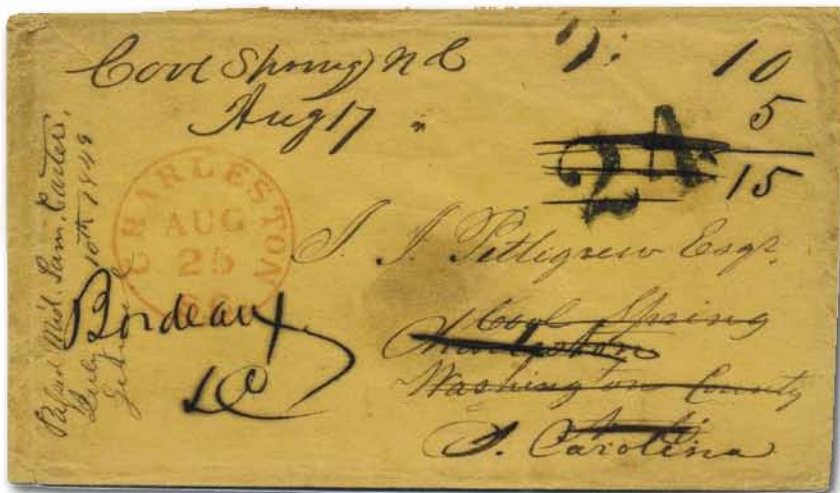 Cool Spring N C
Aug 17
10
5
24
15
CHARLESTON
AUG
25
J. J. Pettigrew Esqr.
Cool Spring
Charleston
Washington County
S. Carolina
Bordeaux
SC
Sam. Carter,
July 10th 1849